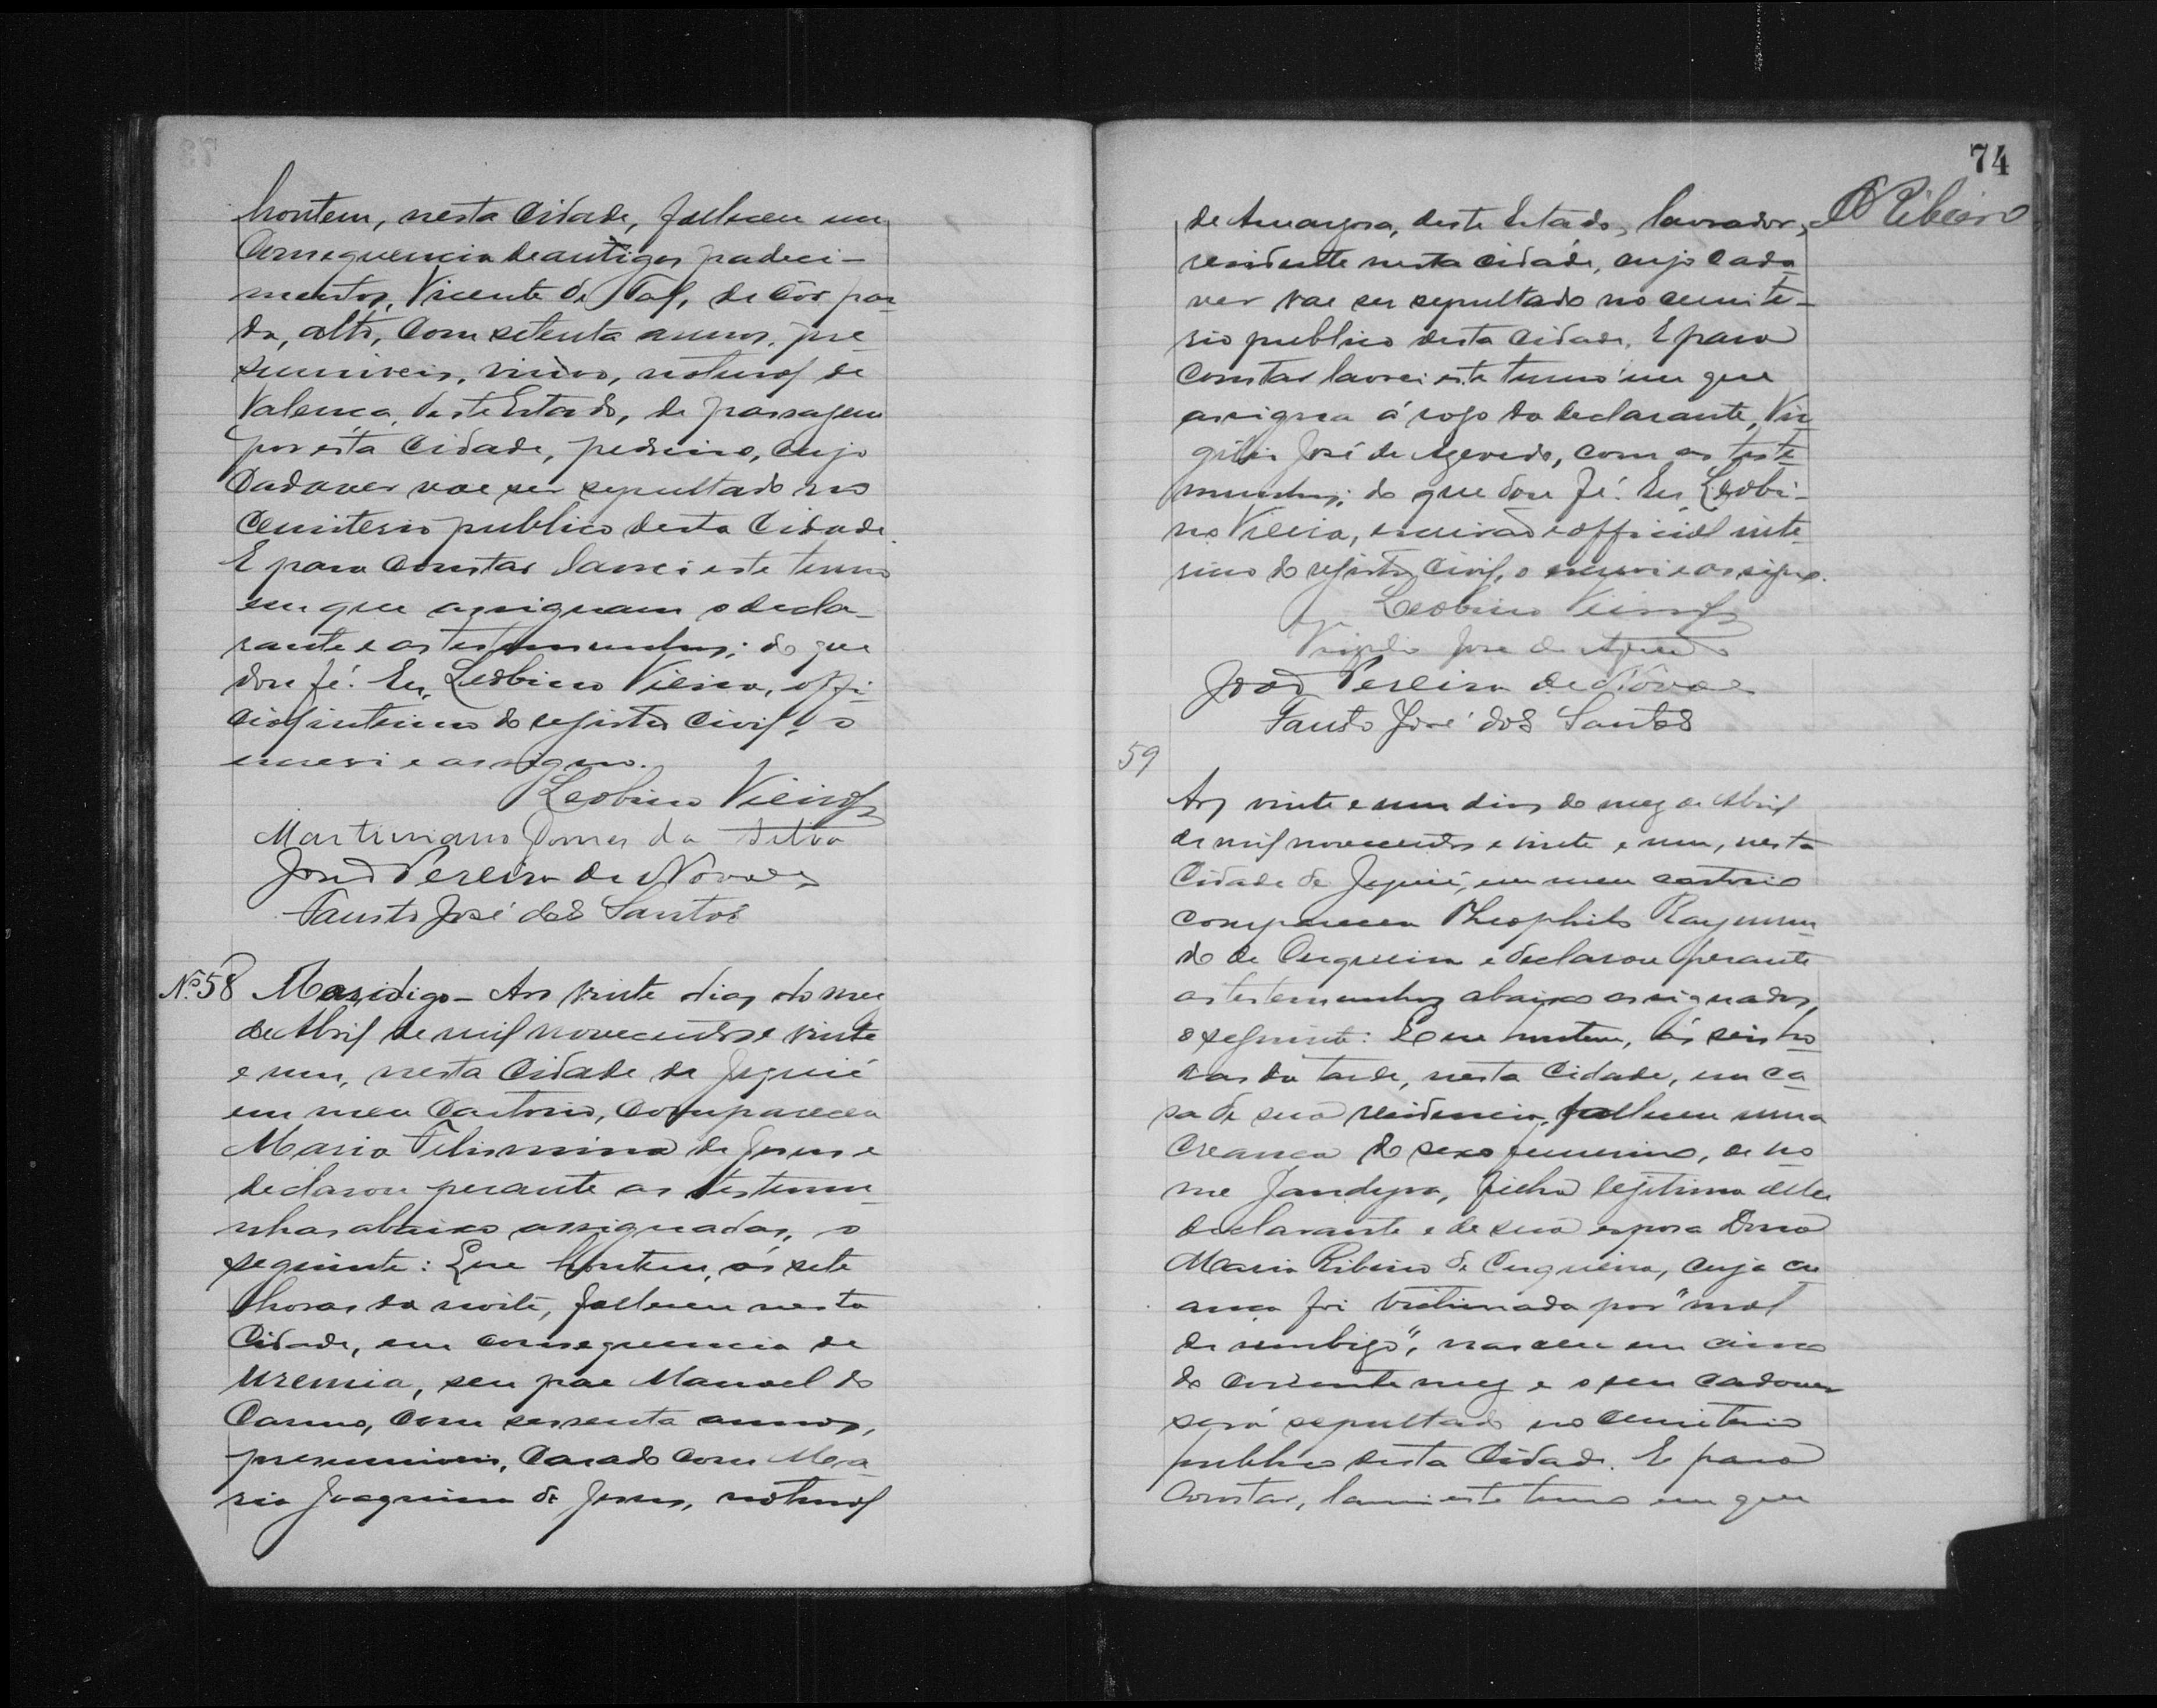 hontem, nesta Cidade, falleceu em
Consequencia de antigos padeci-
mentos, Vicente de Tal, de côr par-
da, alto, com setenta annos, pre-
sumiveis, viuvo, natural de
Valença, deste Estado, de passagem
por esta Cidade, pedreiro, cujo
Cadaver vae ser sepultado no
Cemiterio publico desta Cidade.
E para constar lavrei este termo
em que assignam o decla-
rante e as testemunhas; do que
dou fé. Eu, Leobino Vieira, offi-
cial interino do registro Civil, o
escrevi e assigno.
Leobino Vieira
Martiniano Gomes da Silva
João Pereira de Novaes
Fausto José dos Santos
Nº 58 Aos vinte dias do mez
de Abril de mil novecentos e vinte
e um, nesta Cidade de Jequié
em meu Cartorio, compareceu
Maria Felismina de Jesus e
declarou perante as testemu-
nhas abaixo assignadas, o
seguinte: Que hontem, ás sete
horas da noite, falleceu nesta
Cidade, em consequencia de
uremia, seu pae Manoel do
Carmo, com sessenta annos,
presumiveis, Casado com Ma-
ria Joaquina de Jesus, natural
74
ORibeiro
de Amargosa, deste Estado, lavrador,
residente nesta cidade, cujo Cada-
ver vae ser sepultado no cemite-
rio publico desta Cidade. E para
constar lavrei este termo em que
assigna á rogo da declarante, Vir-
gilio José de Azevedo, com as teste-
munhas; do que dou fé. Eu, Leobi-
no Vieira, escrivão e official inte-
rino do registro Civil, o escrevi e assigno.
Leobino Vieira
Virgilio José de Azevedo
João Pereira de Novaes
Fausto José dos Santos
59
Aos vinte e um dias do mez de Abril
de mil novecentos e vinte e um, nesta
Cidade de Jequié, em meu cartorio
compareceu Theophilo Raymun-
do de Cerqueira e declarou perante
as testemunhas abaixo assignadas,
o seguinte: Que hontem, ás seis ho-
ras da tarde, nesta Cidade, em ca-
sa de sua residencia, falleceu uma
Creança do sexo femenino, de no-
me Jandyra, filha legitima delle
declarante e de sua esposa Dona
Maria Ribeiro de Cerqueira, cuja cre-
ança foi victimada por "mal
de umbigo", nasceu em cinco
do corrente mez e o seu cadaver
será sepultado no cemiterio
publico desta Cidade. E para
Constar, lavrei este termo em que